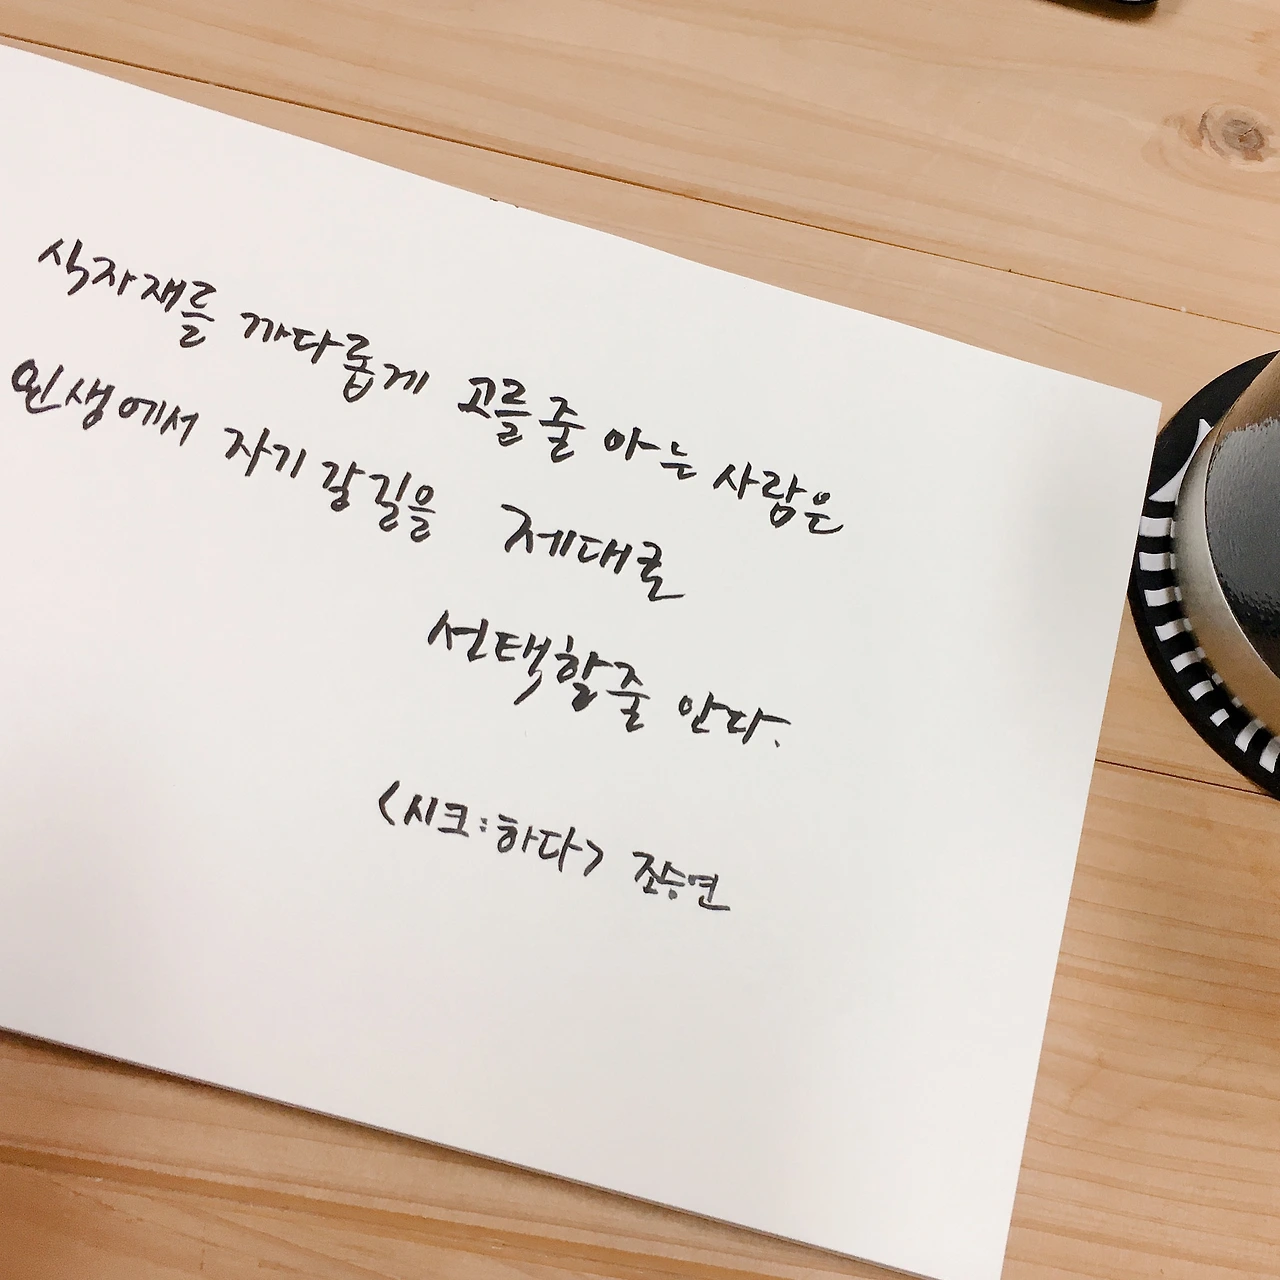 식자재를 까다롭게 고를 줄 아는 사람은
인생에서 자기 갈길을 제대로
선택할줄 안다.
<시크:하다> 조승연